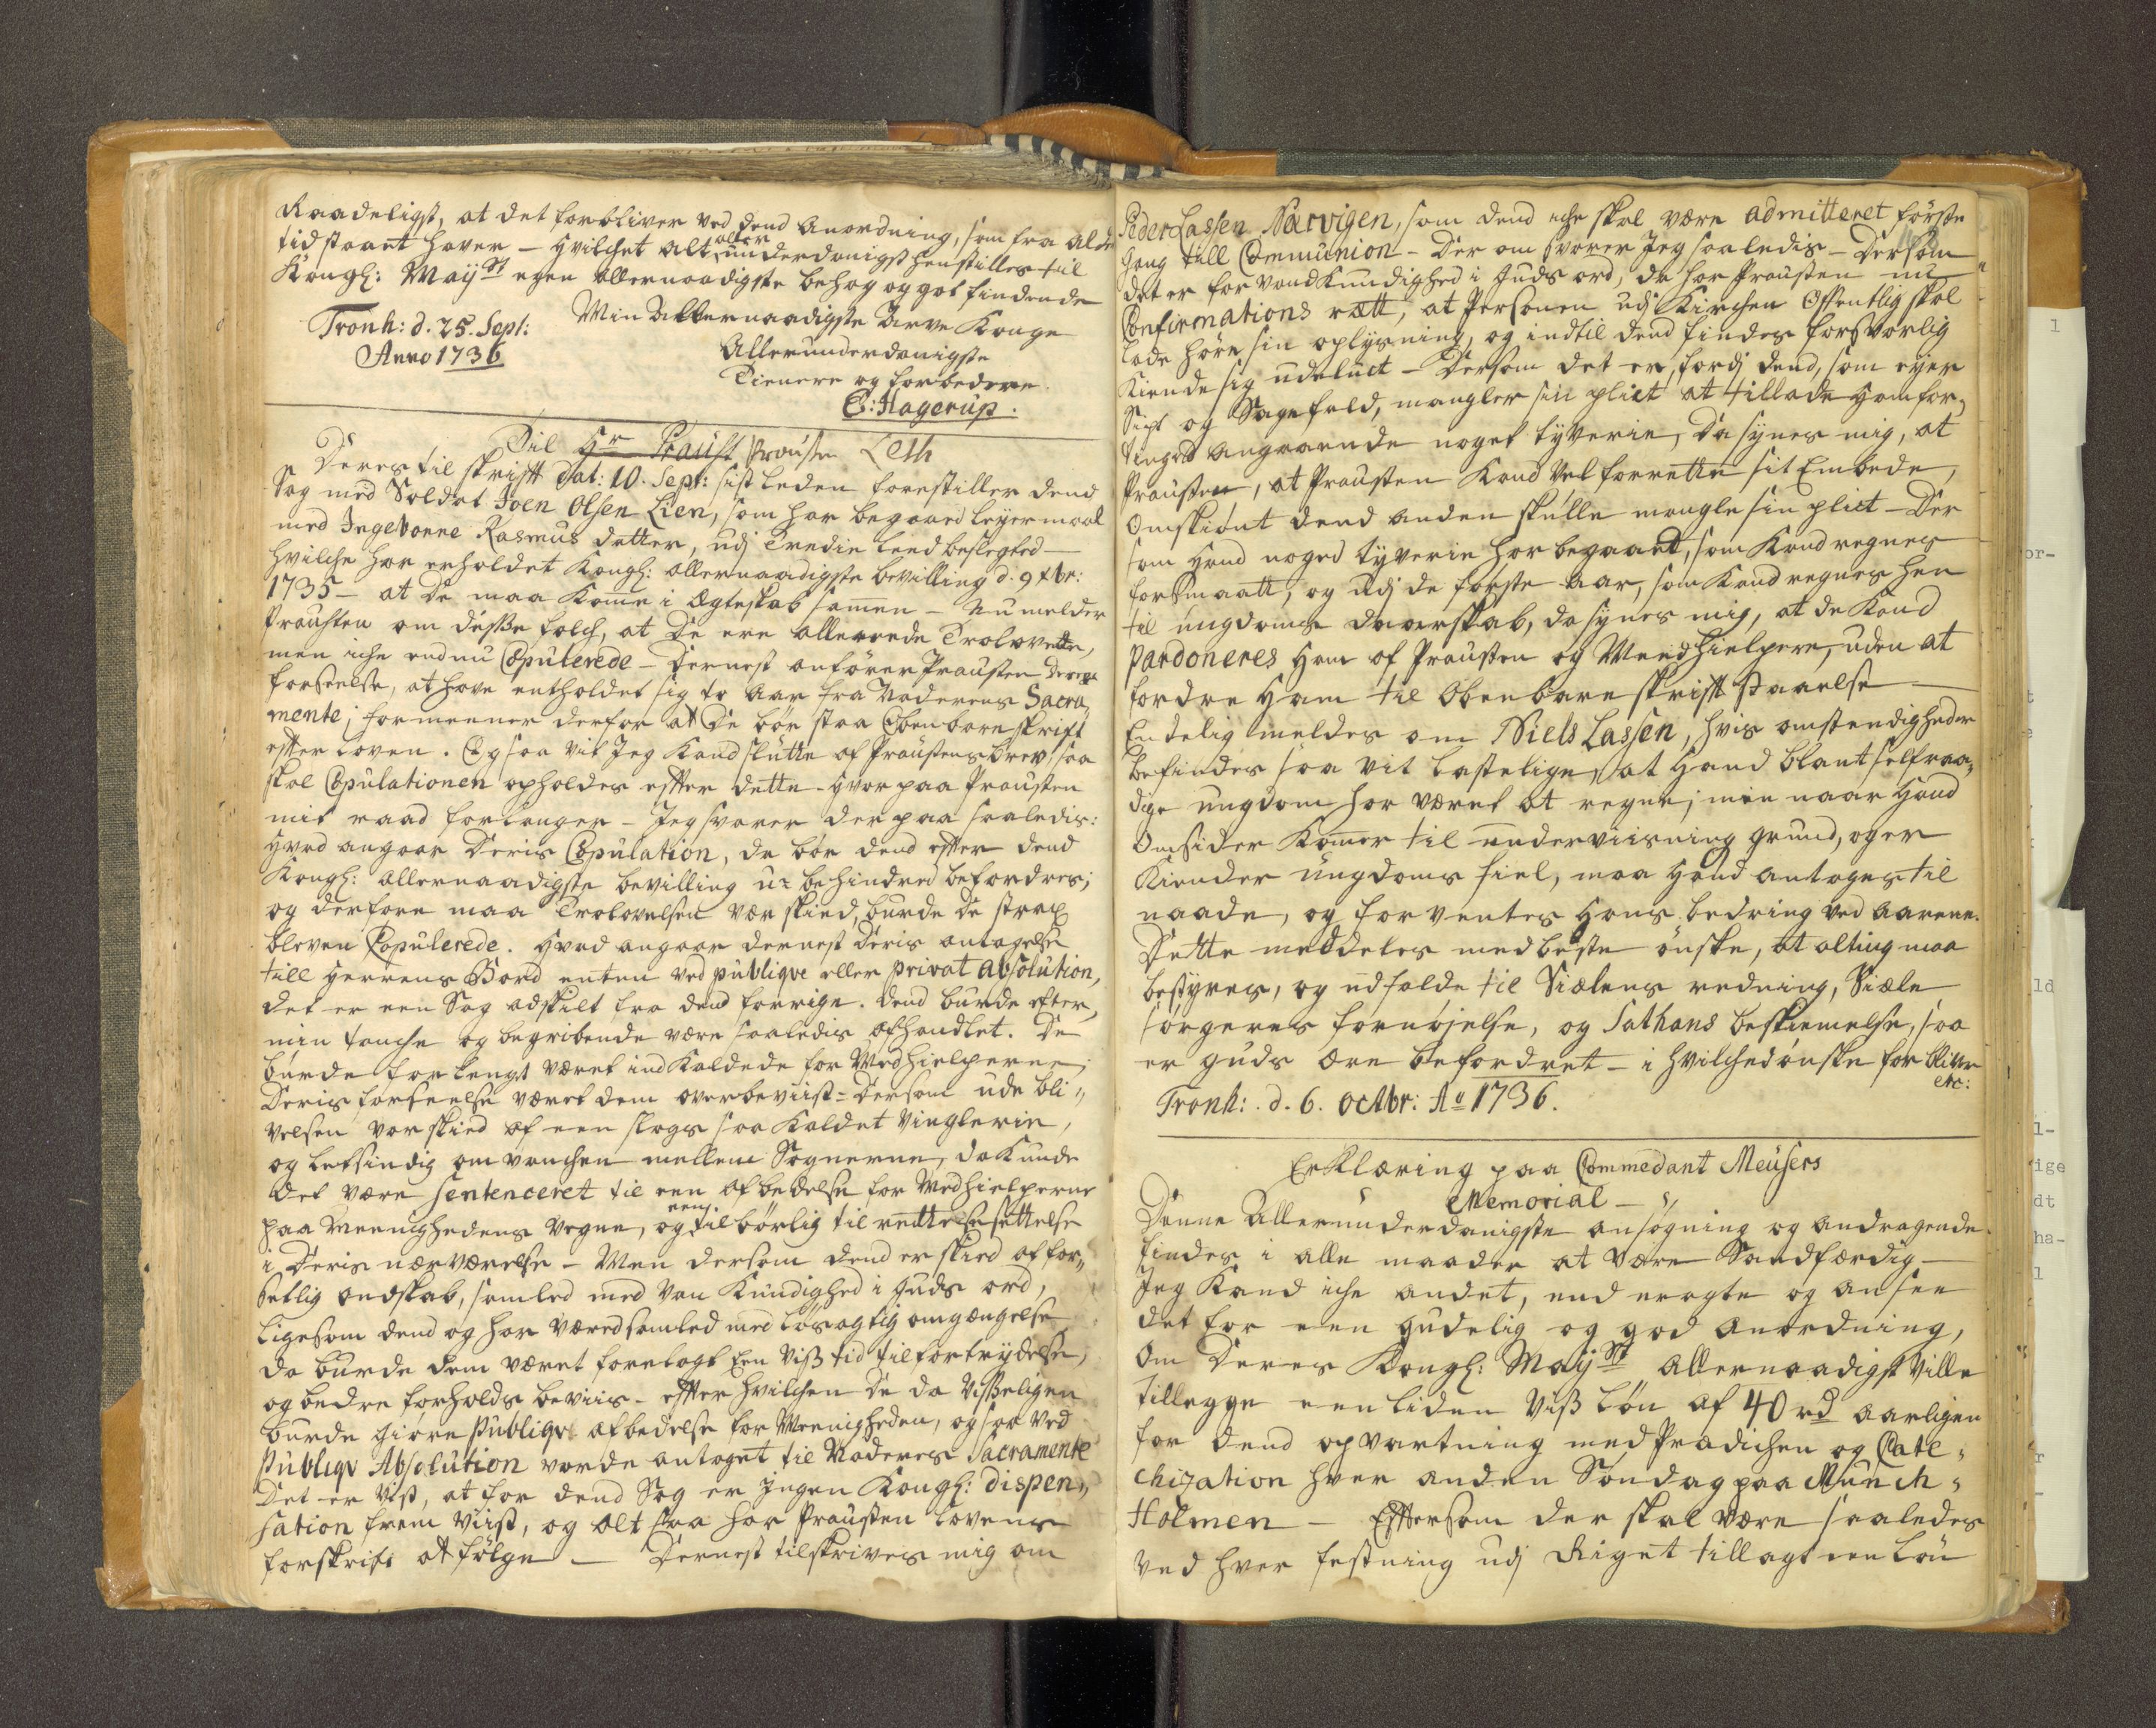 Raadeligst, at det forbliver ved dend anordning, som fra alde
tid staaet haver – hvilchet alt aller
underdanigst henstilles til
Kongl: Mayst egen allernaadigste behag og got findende
Tronh: d. 25. Sept:
Anno 1736
Min Allernaadigste Arve Konge
Allerunderdanigste
Tienere og forbedere
E: Hagerup.
Til Hr Praust Prousten Leth
Deres til skrifft dat: 10. Sept: sist leden forestiller dend
Sag med Soldat Joen Olsen Lien, som har begaaed leyermaal
med Ingeborre Rasmus datter, udj Tredie leed beslegted –
hvilche har erholdet Kongl: allernaadigste bevilling d. 9 xbr:
1735 – at de maa Kome i Ægteskab samen – Nu melder
Prousten om disse folch, at De ere allereede Trolovede,
men iche endnu Copulerede – Dernest anfører Prousten deres
forseelse, at have entholdet sig to Aar fra Naadens Sacra,
mente; formeener derfor at De bør staa Obenbare skrift
effter loven. Og saa vit Jeg Kand slutte af Proustens brev, saa
skal Copulationen opholdes effter dette – hvorpaa Prousten
mit raad forlanger – Jeg svarer der paa saaledis:
Hvad angaar Deris Copulation, da bør dend effter dend
Kongl: allernaadigste bevilling u-behindred befordres;
og derfore maa Trolovelsen vær skied, burde De strax
bleven Copulerede. Hvad angaar dernest Deris antagelse
till Herrens Bord enten ved publiqve eller privat absolution,
det er een Sag adskilt fra dend forrige. dend burde efter,
min tanche og begribende være saaledis afhandlet. De
burde for lengst været ind Kaldede for Medhielperne,
Deris forseelse været dem overbeviist – Dersom ude bli,,
velsen var skied af een slags saa Kaldet vinglerie,
og letsindig om vanchen mellem Sognerne, da Kunde
det være sentenceret til een afbedelse for Medhielperne
paa Meenighedens vegne, og een tilbørlig til rettesettelse
i Deris nærværelse – Men dersom dend er skied af for,,
setlig ondskab, samled med van Kundighed i Guds ord,
ligesom dend og har væred samled med løsagtig omgængelse
da burde dem været foretagt een viss tid til fortrydelse,
og bedre forholds beviis – effter hvilchen De da visseligen
burde giøre publiqve afbedelse for Meenigheden, og saa ved
Publiqv Absolution vorde antaget til Naadens Sacramente
Det er vist, at for dend Sag er Jngen Kongl: dispen,,
sation frem viist, og alt saa har Prousten lovens
forskrift at følge – Dernest tilskrives mig om
Peder Lassen Nærvigen, som dend iche skal være admitteret første
gang till Communion – Der om svarer Jeg saaledis – Dersom
det er for vand Kundighed i Guds ord, da har Prousten nu
Confirmations rætt, at Personen udj Kirchen Offentlig skal
lade høre sin oplysning, og indtil dend findes forsvarlig
Kiende sig udeluct – Dersom det er, fordj dend, som eyer
Sigt og Sagefald, mangler sin plict at tillade ham for,
angaaende noget tyverie, da synes mig, at
Prousten, at Prousten Kand vel forrette sit Embede,
Omskiønt dend anden skulle mangle sin plict – Der
som hand noged tyverie har begaaet, som Kand regnes
forsmaatt, og udj de første aar, som Kand regnes hen
til ungdoms daarskab, da synes mig, at de Kand
pardoneres ham af Prousten og Meedhielpere, uden at
fordre ham til Obenbare skrifft staaelse
Endelig meldes om Niels Lassen, hvis omstendigheder
befindes saa vit lastelige, at Hand blant selfraa,
dige ungdom har været at regne; men naar Hand
omsider Komer til underviisning grund, og er
Kiender ungdoms fiel, maa Hand antages til
naade, og forventes hans bedring ved aarene.
Dette meddeles med beste ønske, at alting maa
bestyres, og udfalde til Siælens redning, Siæle
sørgeres fornøjelse, og Sathans beskiemelse, saa
er Guds ære befordret – i hvilched ønske forbliver
etc:
Tronh: d. 6. Octbr: Ao 1736.
Erklæring paa Commedant Meüsers
Memorial –
Denne Allerunderdanigste ansøgning og andragende
findes i alle maader at være Sandfærdig –
Jeg Kand iche andet, end eragte og ansee
det for een gudelig og god anordning,
Om Deres Kongl: Mayst Allernaadigst ville
tillegge een liden viss løn af 40 rd aarligen
for dend opvartning med Prædichen og Cate,
chization hver anden Søndag paa Munch,
Holmen – Efftersom der skal være saaledes
ved hver festning udj Riget tillagt een løn